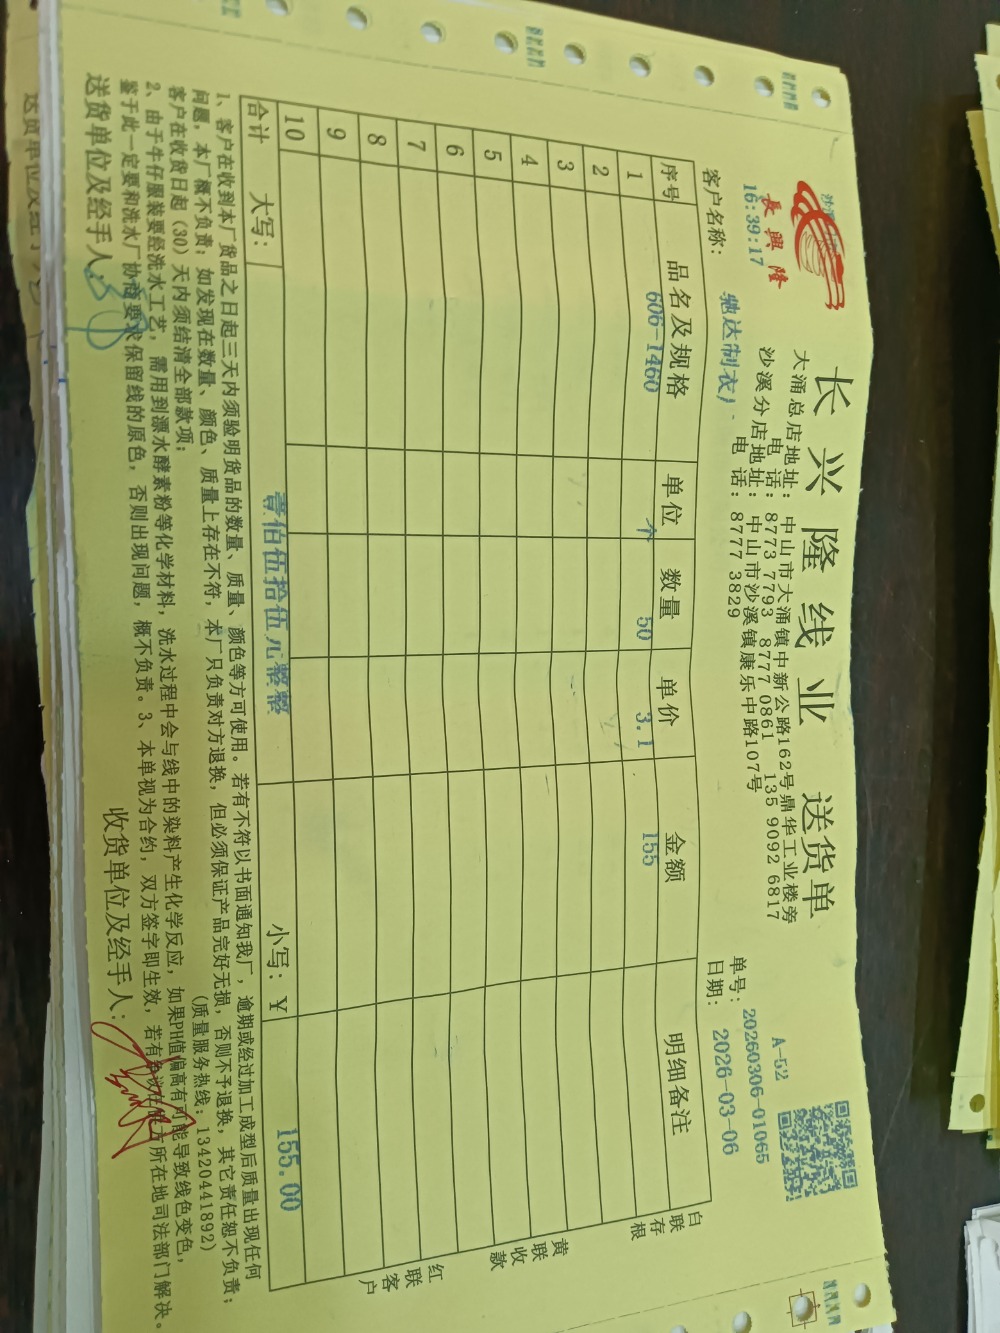 長興隆
16:39:17
长兴隆线业 送货单
大涌总店地址: 中山市大涌镇中新公路162号鼎华工业楼旁
电 话: 8773 7793 8777 0861 135 9092 6817
沙溪分店地址: 中山市沙溪镇康乐中路107号
电 话: 8777 3829
A-52
单号: 20260306-01065
日期: 2026-03-06
客户名称: 驰达制衣)
序号 品名及规格 单位 数量 单价 金额 明细备注
1 606-1460 个 50 3.1 155
2
3
4
5
6
7
8
9
10
合计 大写: 壹佰伍拾伍元整整 小写: ¥ 155.00
白联存根
黄联收款
红联客户
1、客户在收到本厂货品之日起三天内须验明货品的数量、质量、颜色等方可使用。若有不符以书面通知我厂, 逾期或经过加工成型后质量出现任何
问题, 本厂概不负责; 如发现在数量、颜色、质量上存在不符, 本厂只负责对方退换, 但必须保证产品完好无损, 否则不予退换, 其它责任恕不负责;
客户在收货日起 (30) 天内须结清全部款项; (质量服务热线: 13420441892)
2、由于牛仔服装要经洗水工艺, 需用到漂水酵素粉等化学材料, 洗水过程中会与线中的染料产生化学反应, 如果PH值偏高有可能导致线色变色,
鉴于此一定要和洗水厂协商要求保留线的原色, 否则出现问题, 概不负责。3、本单视为合约, 双方签字即生效, 若有 所在地司法部门解决。
送货单位及经手人: 收货单位及经手人:
送货单位及经手人